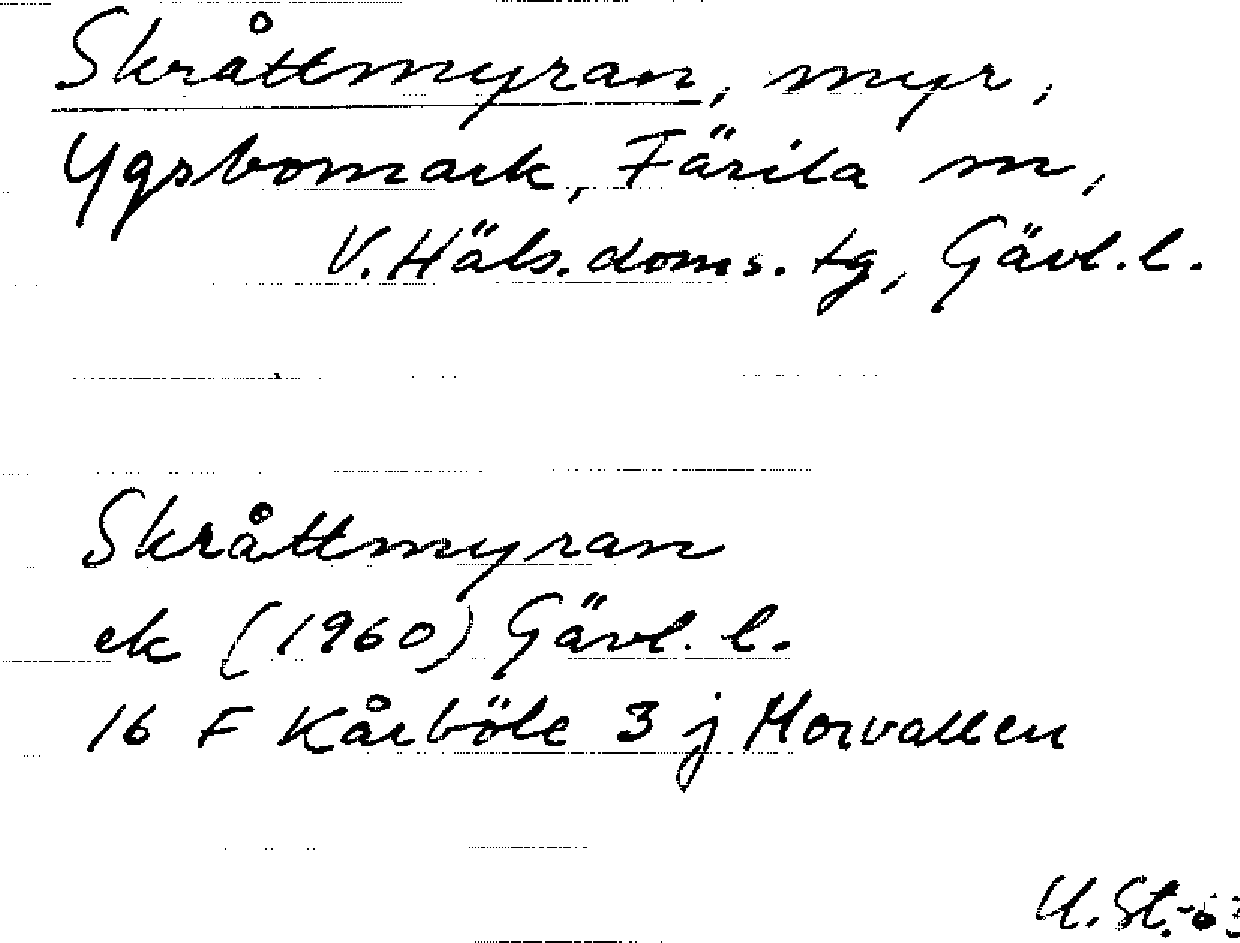 Skråttmyran, myr,
Ygsbomark, Färila sn,
V. Häls. doms. tg, Gävl. l.
Skråttmyran
ek (1960) Gävl. l.
16 F Kårböle 3 j Morvallen
U. St.-63